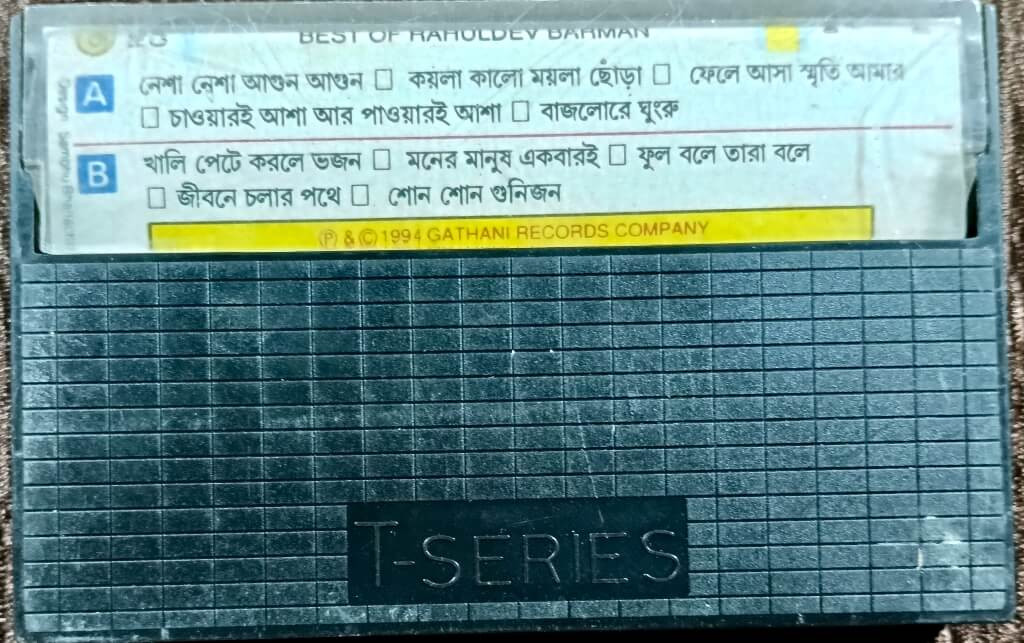 BEST OF RAHULDEV BARMAN
A নেশা নেশা আগুন আগুন □ কয়লা কালো ময়লা ছোঁড়া □ ফেলে আসা স্মৃতি আমার
□ চাওয়ারই আশা আর পাওয়ারই আশা □ বাজলোরে ঘুংরু
B খালি পেটে করলে ভজন □ মনের মানুষ একবারই □ ফুল বলে তারা বলে
□ জীবনে চলার পথে □ শোন শোন গুনিজন
(P) & (C) 1994 GATHANI RECORDS COMPANY
T-SERIES